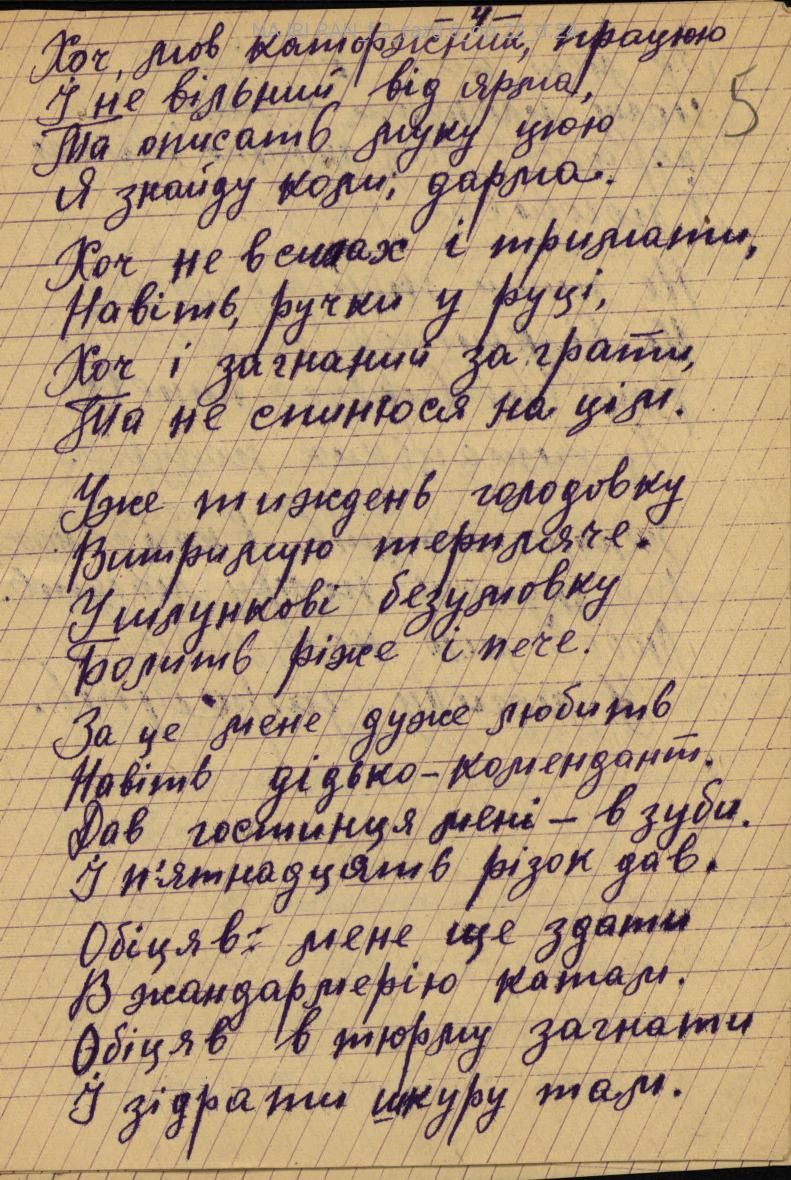 4
5
Хоч, мов каторжний, працюю
І не вільний від ярма,
Та описать муку цюю
Я знайду коли, дарма.
Хоч не в силах і тримати,
Навіть, ручки у руці,
Хоч і загнаний за грати,
Та не спинюся на цім.
Уже тиждень голодовку
Витримую терпляче.
У шлункові безумовку
Болить ріже і пече.
За це мене дуже любить
Навіть дідько-комендант.
Дав гостинця мені – в зуби.
І п'ятнадцять різок дав.
Обіцяв: мене ще здати
В жандармерію катам.
Обіцяв в тюрму загнати
Й зідрати шкуру там.